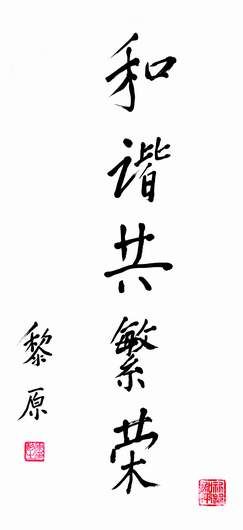 和谐共繁荣
黎原